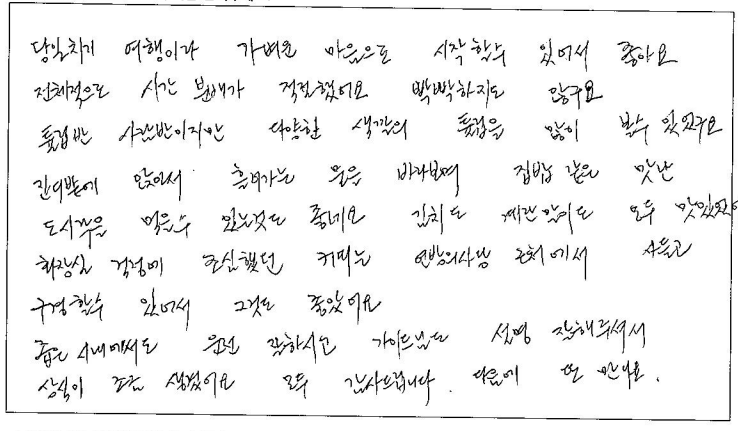 당일치기 여행이라 가벼운 마음으로 시작할수 있어서 좋아요
전체적으로 시간 분배가 적절했어요 빡빡하지도 않구요
튤립반 사람반이지만 다양한 색깔의 튤립을 많이 볼수 있었구요
잔디밭에 앉아서 흘러가는 물을 바라보며 집밥 같은 맛난
도시락을 먹을수 있는것도 좋네요 김치도 계란말이도 모두 맛있었어
화장실 걱정에 조심했던 커피는 에서 사들고
구경할수 있어서 그것도 좋았어요
좁은 시내에서도 운전 잘하시고 가이드님도 설명 잘해주셔서
상식이 조금 생겼어요 모두 감사드립니다. 다음에 또 만나요.